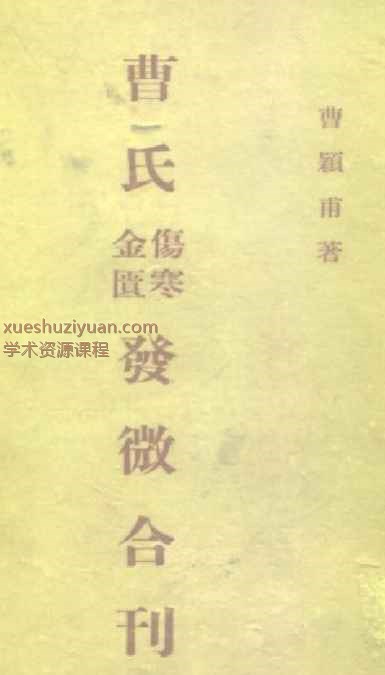 曹穎甫著
曹氏傷寒金匱發微合刊
xueshuziyuan.com
学术资源课程